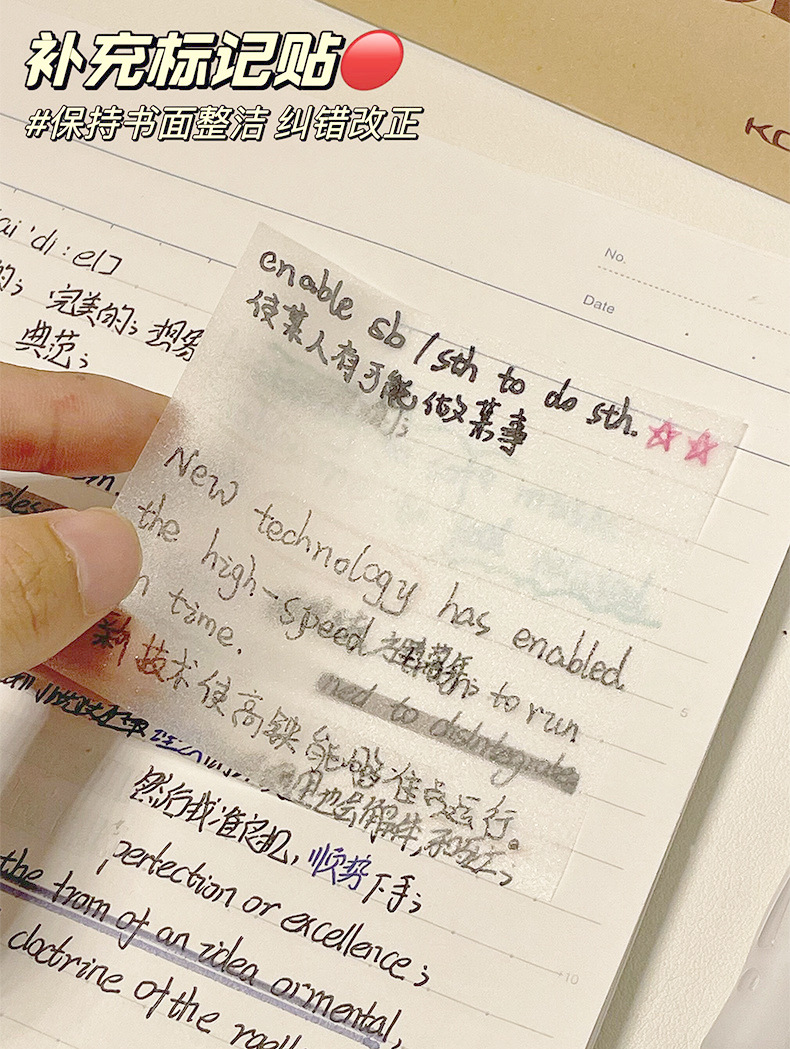 补充标记贴
#保持书面整洁 纠错改正
No.
Date
enable sb / sth to do sth.
使某人有可能做某事
完美的; 想
典范;
New technology has enabled
the high-speed to run
time.
新技术使高铁能够准点运行。
ned to disintegrate
然后找准良机, 顺势下手;
perfection or excellence;
the from of an idea or mental,
doctrine of the
5
10